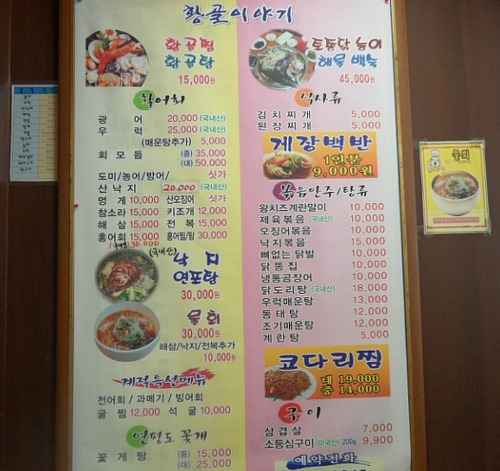 황골이야기
황골찜
황골탕
15,000원
활어회
광 어 20,000 (국내산)
우 럭 25,000 (국내산)
(매운탕추가) 5,000
회 모 듬 (중) 35,000
(대) 50,000
도미/농어/방어/ 싯가
산 낙 지 20,000 (국내산)
멍 게 10,000 산오징어 싯가
참소라 15,000 키조개 12,000
해 삼 15,000 전 복 15,000
홍어회 홍어찜/탕 30,000
(국내산)
낙 지
연포탕
30,000원
물회
30,000원
해삼/낙지/전복추가
10,000원
계절특선메뉴
전어회 / 과메기 / 빙어회
굴 찜 12,000 석 굴 10,000
연평도 꽃게
꽃 게 탕 (소) 15,000
(대) 25,000
토종닭 능이
해물 백숙
45,000원
식사류
김 치 찌 개 5,000
된 장 찌 개 5,000
게장백반
1인분
9,000원
볶음안주/탕류
왕치즈계란말이 10,000
제 육 볶 음 (국내산) 10,000
오징어볶음 10,000
낙 지 볶 음 15,000
뼈없는 닭발 10,000
닭 똥 집 10,000
냉동곰장어 10,000
닭도리탕 (국내산) 18,000
우럭매운탕 13,000
동 태 탕 12,000
조기매운탕 12,000
계 란 탕 5,000
코다리찜
대 19,000
중 14,000
구 이
삼 겹 살 7,000
소등심구이 (미국산) 200g 9,900
예약전화
물회